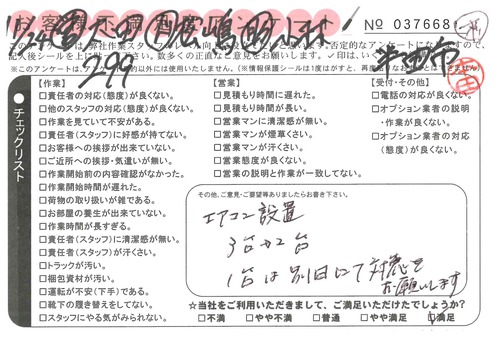 お客様アンケート
No 037668
半田市
このアンケートは弊社作業スタッフ
記入後シールを
※このアンケートは、
以外には使用いたしません。（※情報保護シールは1度はがすと、再度
チェックリスト
【作業】
□責任者の対応(態度)が良くない。
□他のスタッフの対応(態度)が良くない。
□作業を見ていて不安がある。
□責任者(スタッフ)に好感が持てない。
□お客様への挨拶が出来ていない。
□ご近所への挨拶・気遣いが無い。
□作業開始前の内容確認がなかった。
□作業開始時間が遅れた。
□荷物の取り扱いが雑である。
□お部屋の養生が出来ていない。
□作業時間が長すぎる。
□責任者(スタッフ)に清潔感が無い。
□責任者(スタッフ)が汗くさい。
□トラックが汚い。
□梱包資材が汚い。
□運転が不安(下手)である。
□靴下の履き替えをしてない。
□スタッフにやる気がみられない。
【営業】
□見積もり時間に遅れた。
□見積もり時間が長い。
□営業マンに清潔感が無い。
□営業マンが煙草くさい。
□営業マンが汗くさい。
□営業態度が良くない。
□営業の説明と作業が一致してない。
【受付・その他】
□電話の対応が良くない。
□オプション業者の説明
・作業が良くない。
□オプション業者の対応
(態度)が良くない。
その他、ご意見・ご要望等ありましたらお書き下さい。
エアコン設置
3台か2台
1台は別日にて対応を
お願いします
☆当社をご利用いただきまして、ご満足いただけたでしょうか?
□不満 □やや不満 □普通 □やや満足 □満足